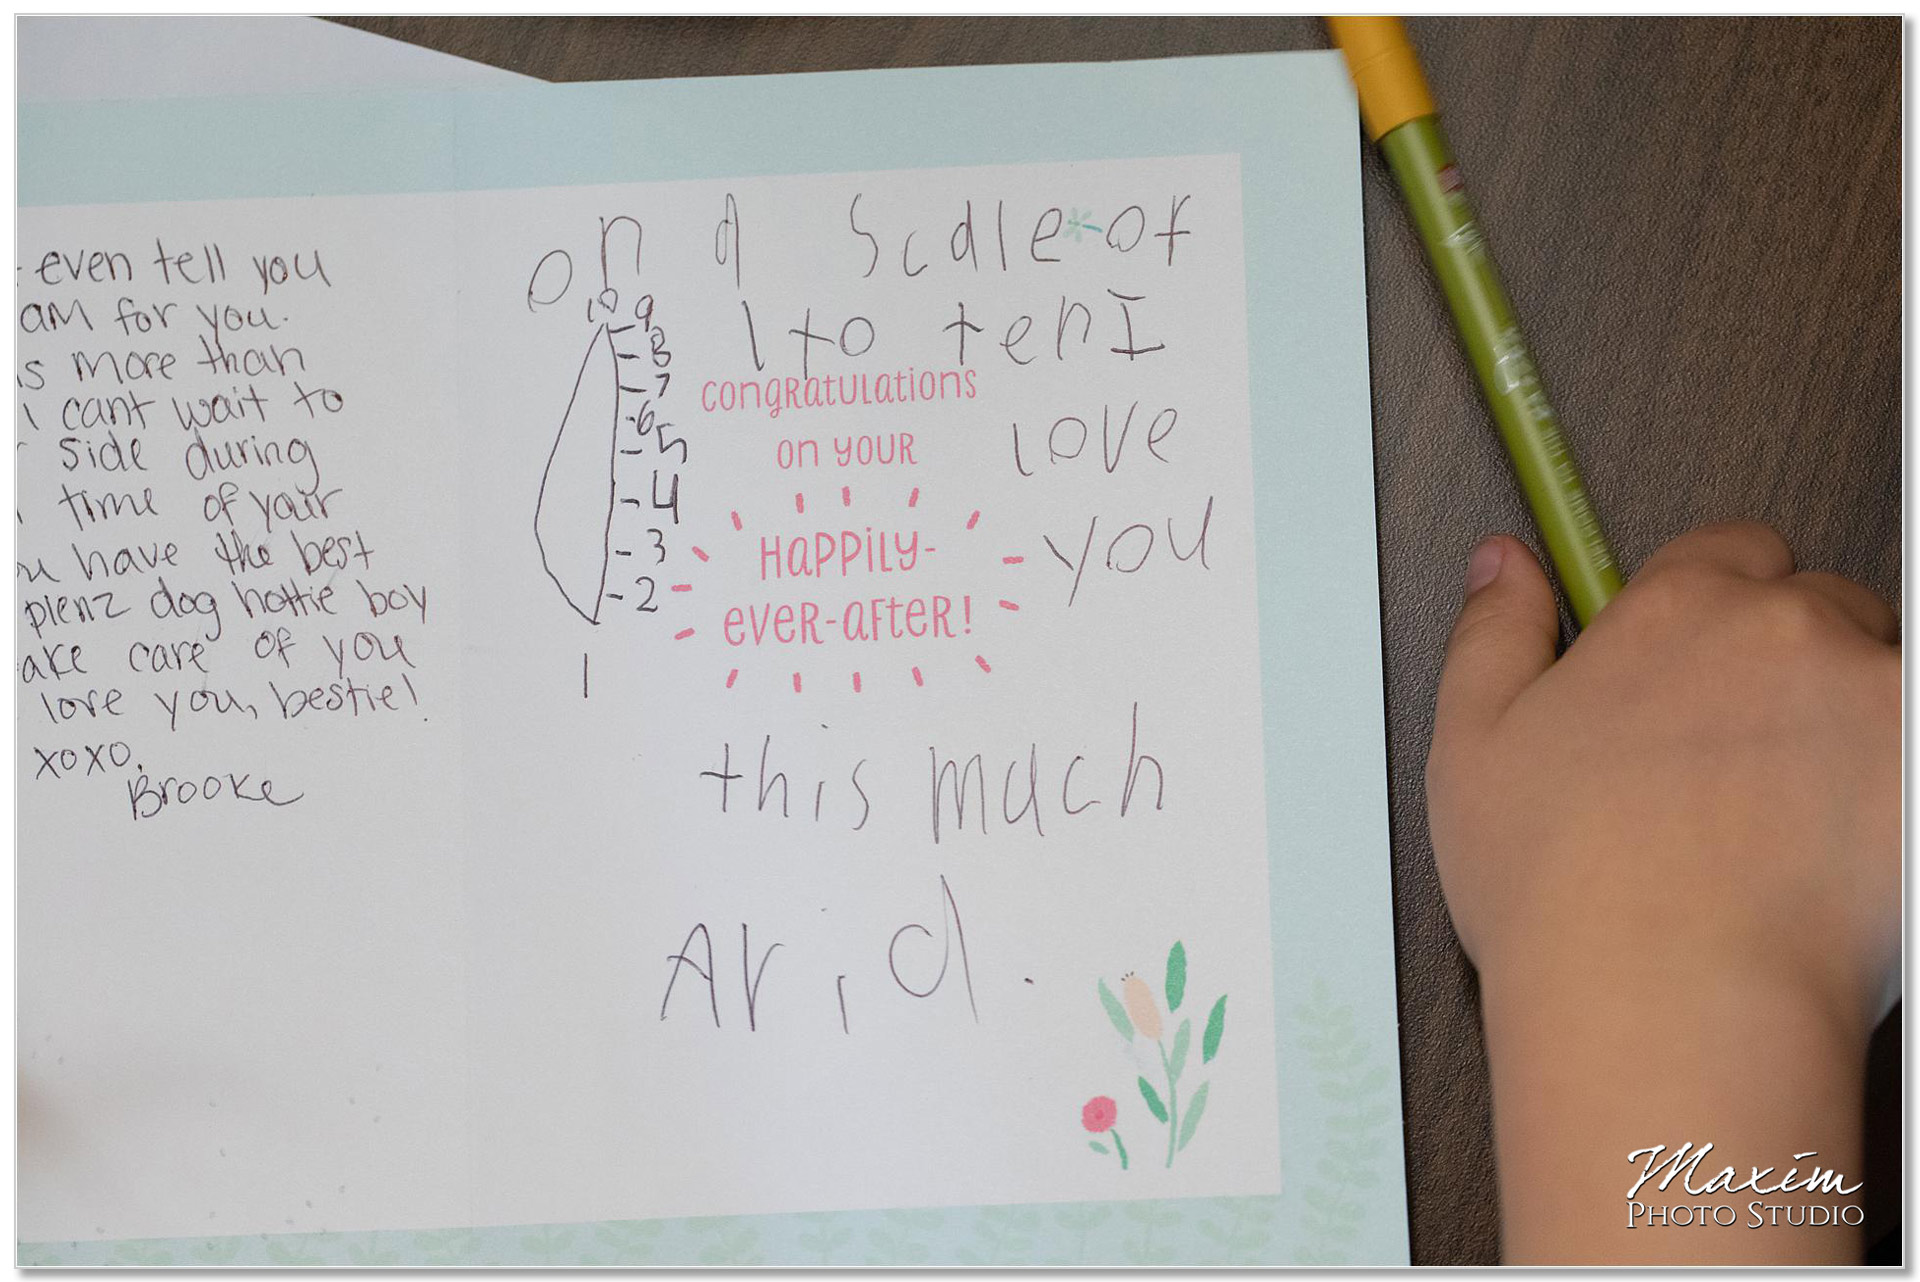 even tell you
am for you.
is more than
I cant wait to
side during
time of your
have the best
plenz dog hottie boy
care of you
love you, bestie!
xoxo,
Brooke
on a scale of
1 to ten I
love
you
10
9
8
7
6
5
4
3
2
1
congratulations
on your
Happily-
ever-after!
this much
Aria.
Maxim
Photo Studio